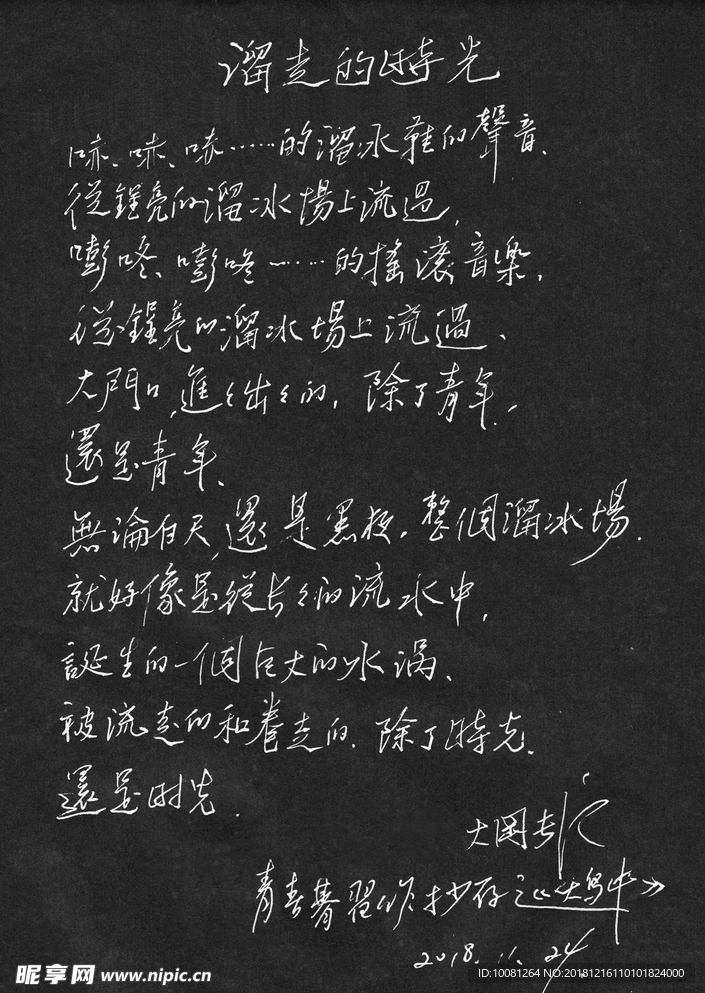 溜走的時光
哧、哧、哧……的溜冰鞋的聲音、
從錚亮的溜冰場上流過，
嘭咚、嘭咚……的搖滾音樂，
從錚亮的溜冰場上流過、
大門口，進進出出的，除了青年，
還是青年、
無論白天，還是黑夜，整個溜冰場．
就好像是從長長的流水中，
誕生的一個巨大的水渦、
被流走的和捲走的．除了時光．
還是时光．
大岡
青春習作抄存
2018.11.24
昵享网 www.nipic.cn
ID:10081264 NO:20181216110101824000